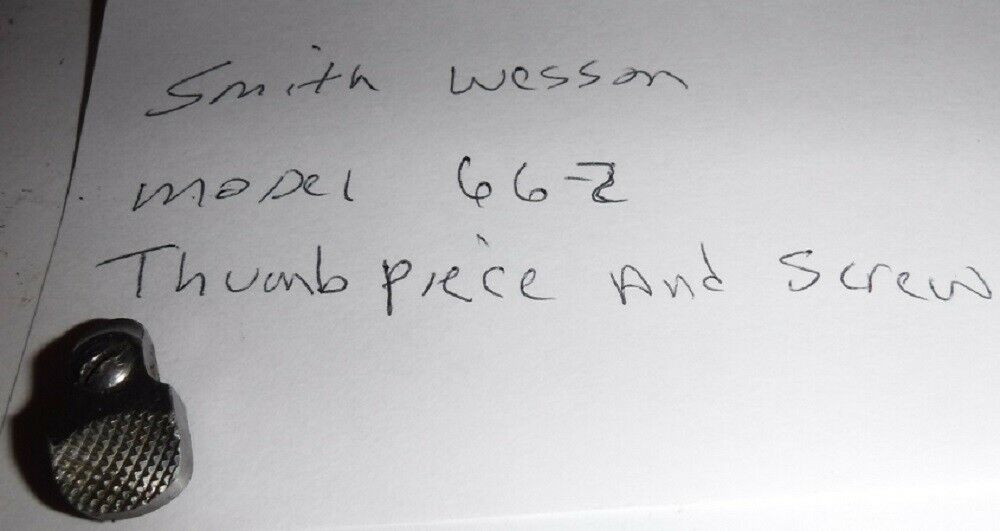 Smith Wesson
Model 66-2
Thumb piece And Screw